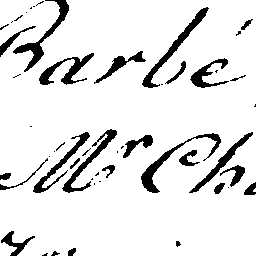 Barbé
Mr Ch